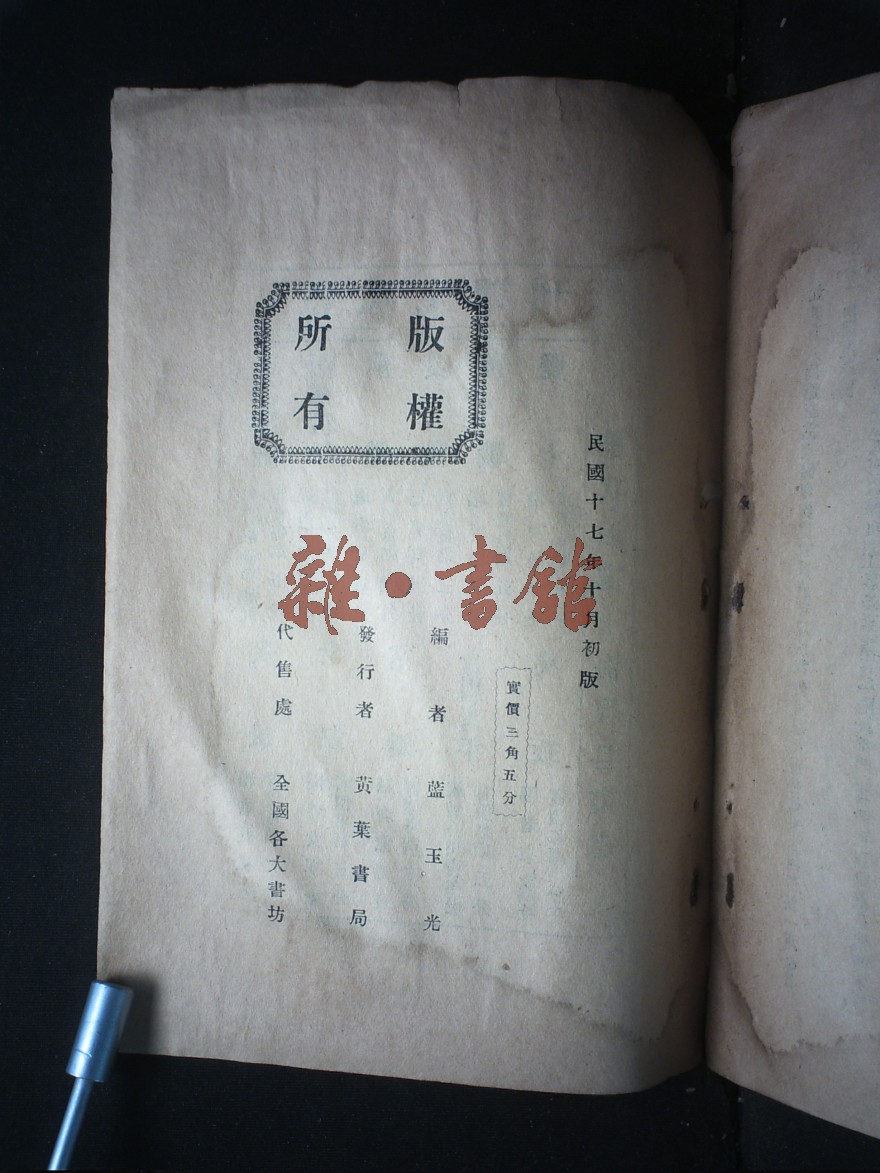 版權
所有
民國十七年十月初版
實價三角五分
編者 藍玉光
發行者 黃葉書局
代售處 全國各大書坊
雜·書館